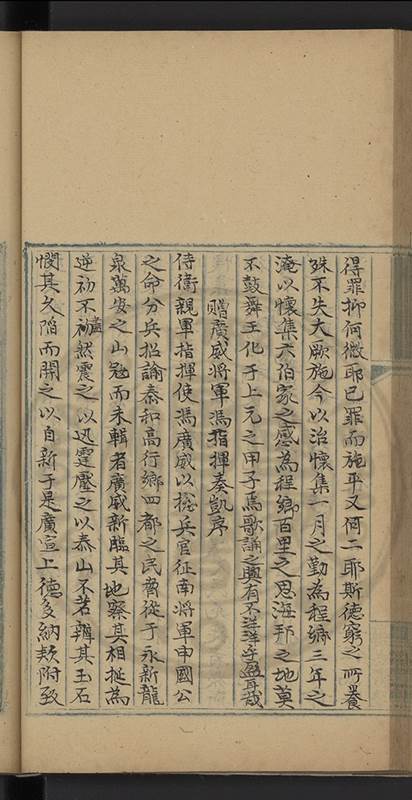 得罪抑何微耶已罪而施平又何二耶斯德窮之所養
殊不失大厥施今以治懷集一月之勤為程鄉三年之
淹以懷集六伯家之感為程鄉百里之思海邦之地莫
不鼓舞王化于上元之甲子焉歌誦之興有不洋洋乎盈耳哉
贈廣威將軍馮指揮奏凱序
侍衛親軍指揮使馮廣威以摠兵官征南將軍申國公
之命分兵招諭泰和高行鄉四都之民脅從于永新龍
泉萬安之山冦而未輯者廣威新臨其地察其相挻為
逆初不盡然震之以迅霆壓之以泰山不若辨其玉石
憫其久陷而開之以自新于是廣宣上德多納欵附致